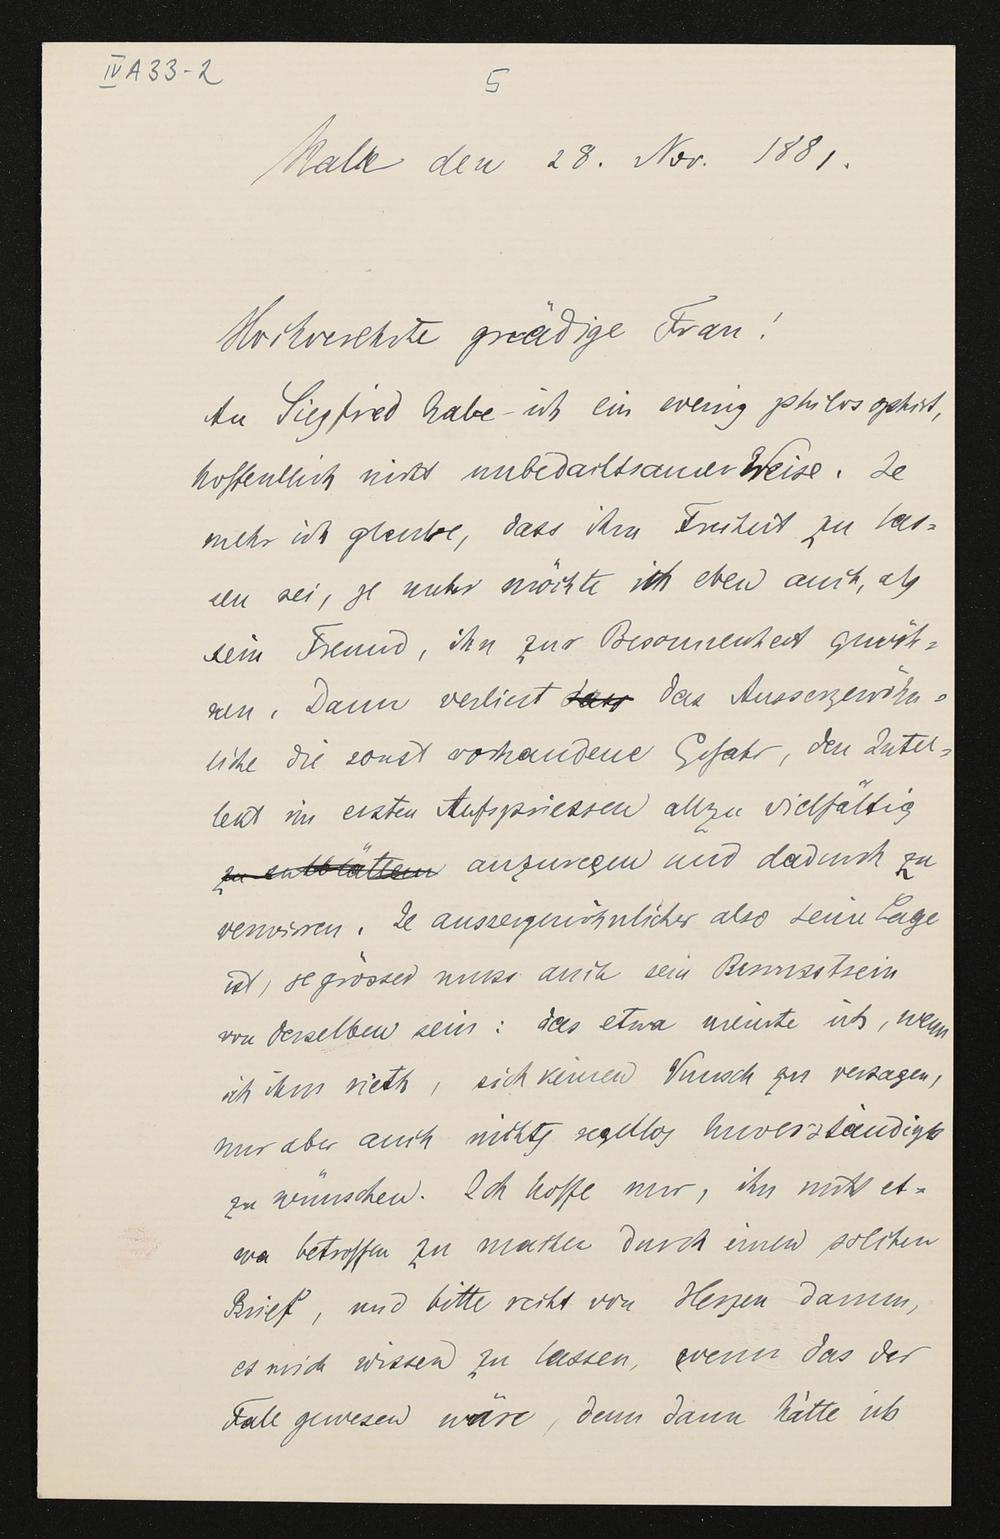 IV A 33-2
5
Halle den 28. Nov. 1881.
Hochverehrte gnädige Frau!
An Siegfried habe ich ein wenig philosophirt,
hoffentlich nicht unbedachtsamer Weise. Je
mehr ich glaube, dass ihm Freiheit zu las-
sen sei, je mehr möchte ich eben auch, als
sein Freund, ihn zur Besonnenheit gewöh-
nen. Dann verliert dass das Aussergewöhn-
liche die sonst vorhandene Gefahr, den Intel-
lekt im ersten Aufspriessen allzu vielfältig
zu entblättern anzuregen und dadurch zu
verwirren. Je aussergewöhnlicher also seine Lage
ist, je grösser muss auch sein Bewusstsein
von derselben sein: das etwa meinte ich, wenn
ich ihm rieth, sich keinen Wunsch zu versagen,
nur aber auch nichts regellos Unverständiges
zu wünschen. Ich hoffe nur, ihn nicht et-
wa betroffen zu machen durch einen solchen
Brief, und bitte recht von Herzen darum,
es mich wissen zu lassen, wenn das der
Fall gewesen wäre, denn dann hätte ich